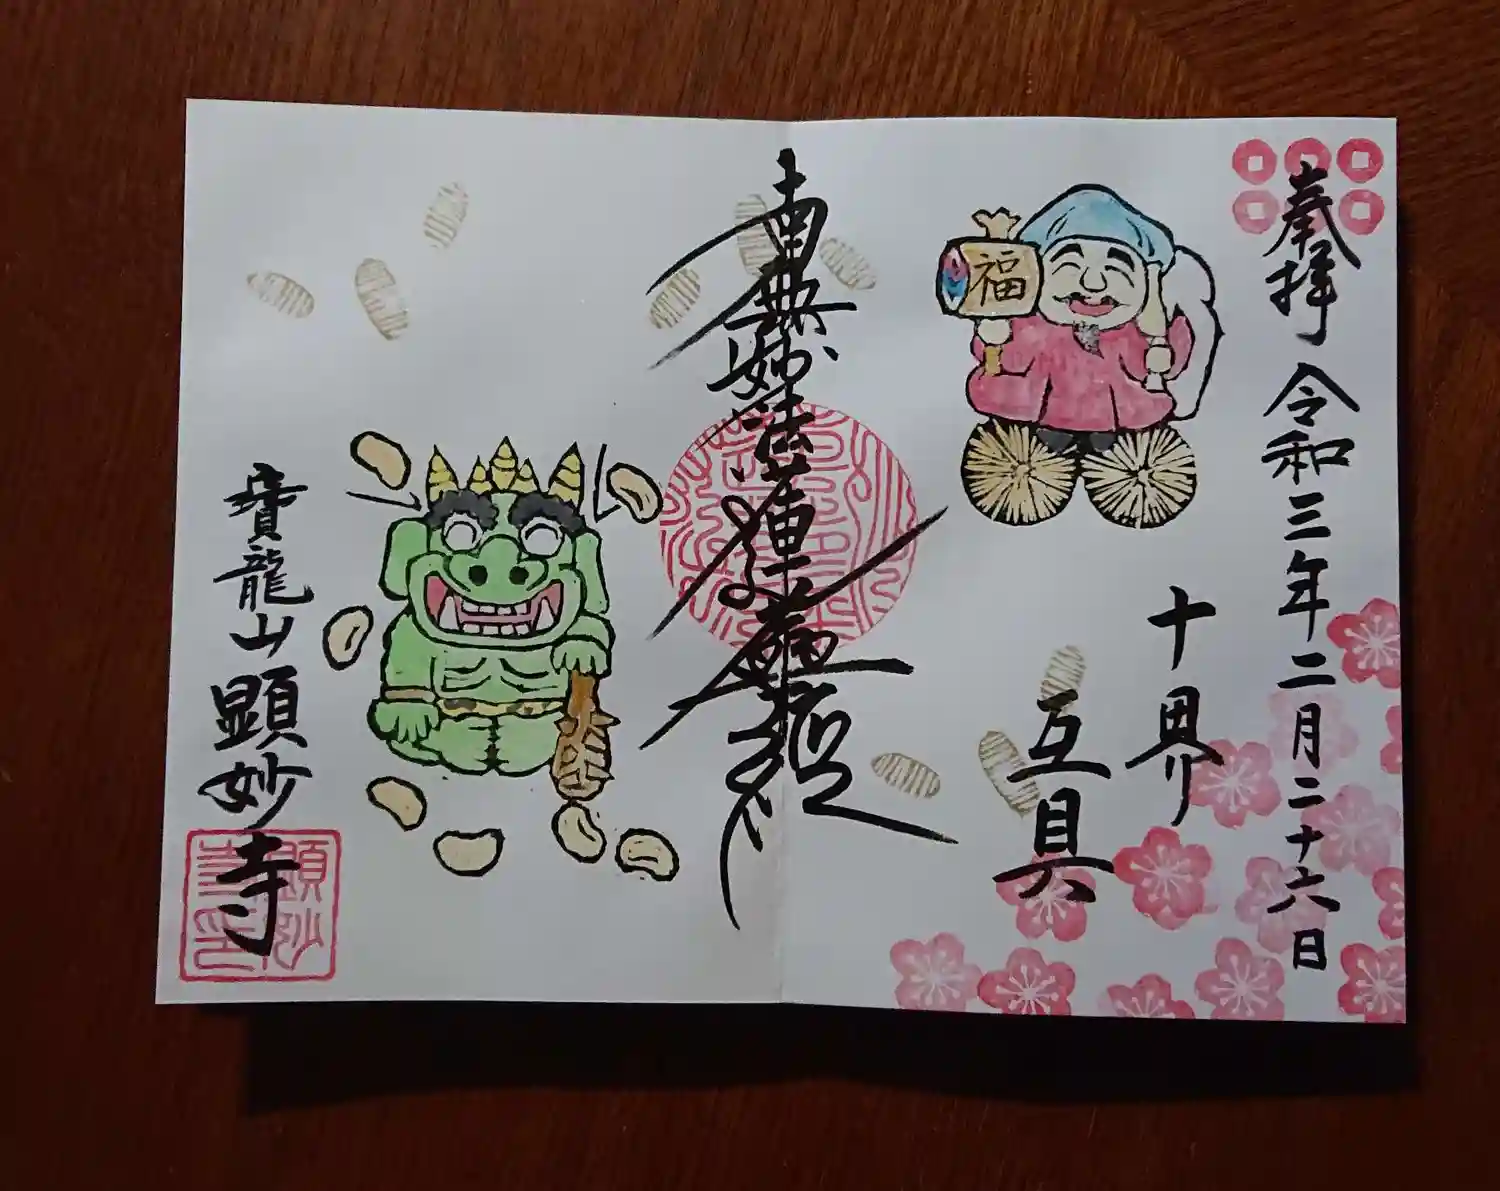 奉拝
令和三年二月二十六日
十界
互具
福
南無妙法蓮華経
寳龍山顕妙寺